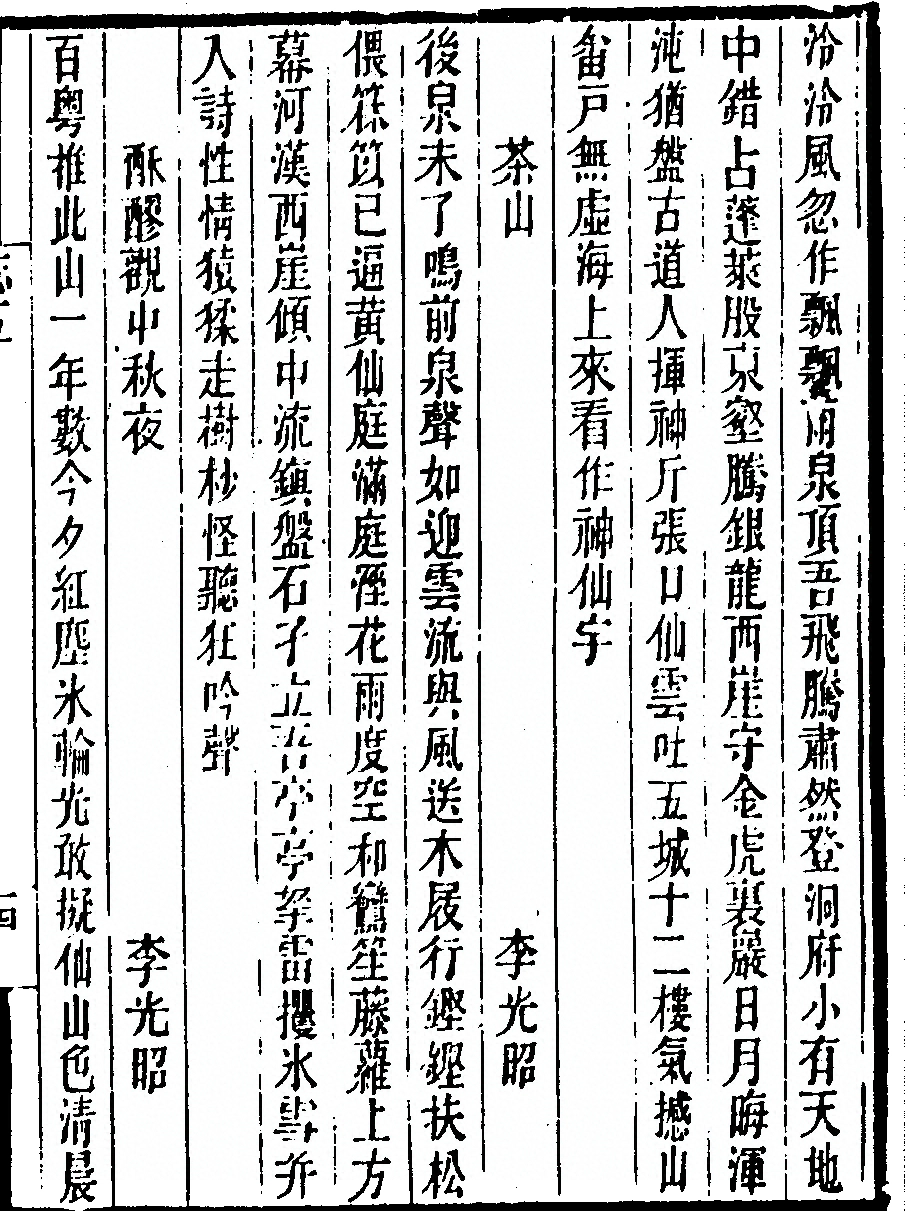 泠泠風忽作飄飄明泉頂吾飛騰肅然登洞府小有天地
中錯占蓬萊股東壑騰銀龍西崖守金虎裏巖日月晦渾
沌猶盤古道人揮神斤張口仙雲吐五城十二樓氣撼山
畬戸無虛海上來看作神仙宇
茶山 李光昭
後泉未了鳴前泉聲如迎雲流與風送木屐行鏗鏗扶松
偎篠笪已逼黃仙庭滿庭煙花雨度空和鸞笙藤蘿上方
幕河漢西崖傾中流鎮盤石孑立吾亭亭拏雷攫氷雪弁
入詩性情猿猱走樹杪怪聽狂吟聲
酥醪觀中秋夜 李光昭
百粵推此山一年數今夕紅塵氷輪光敢擬仙山色清晨
四